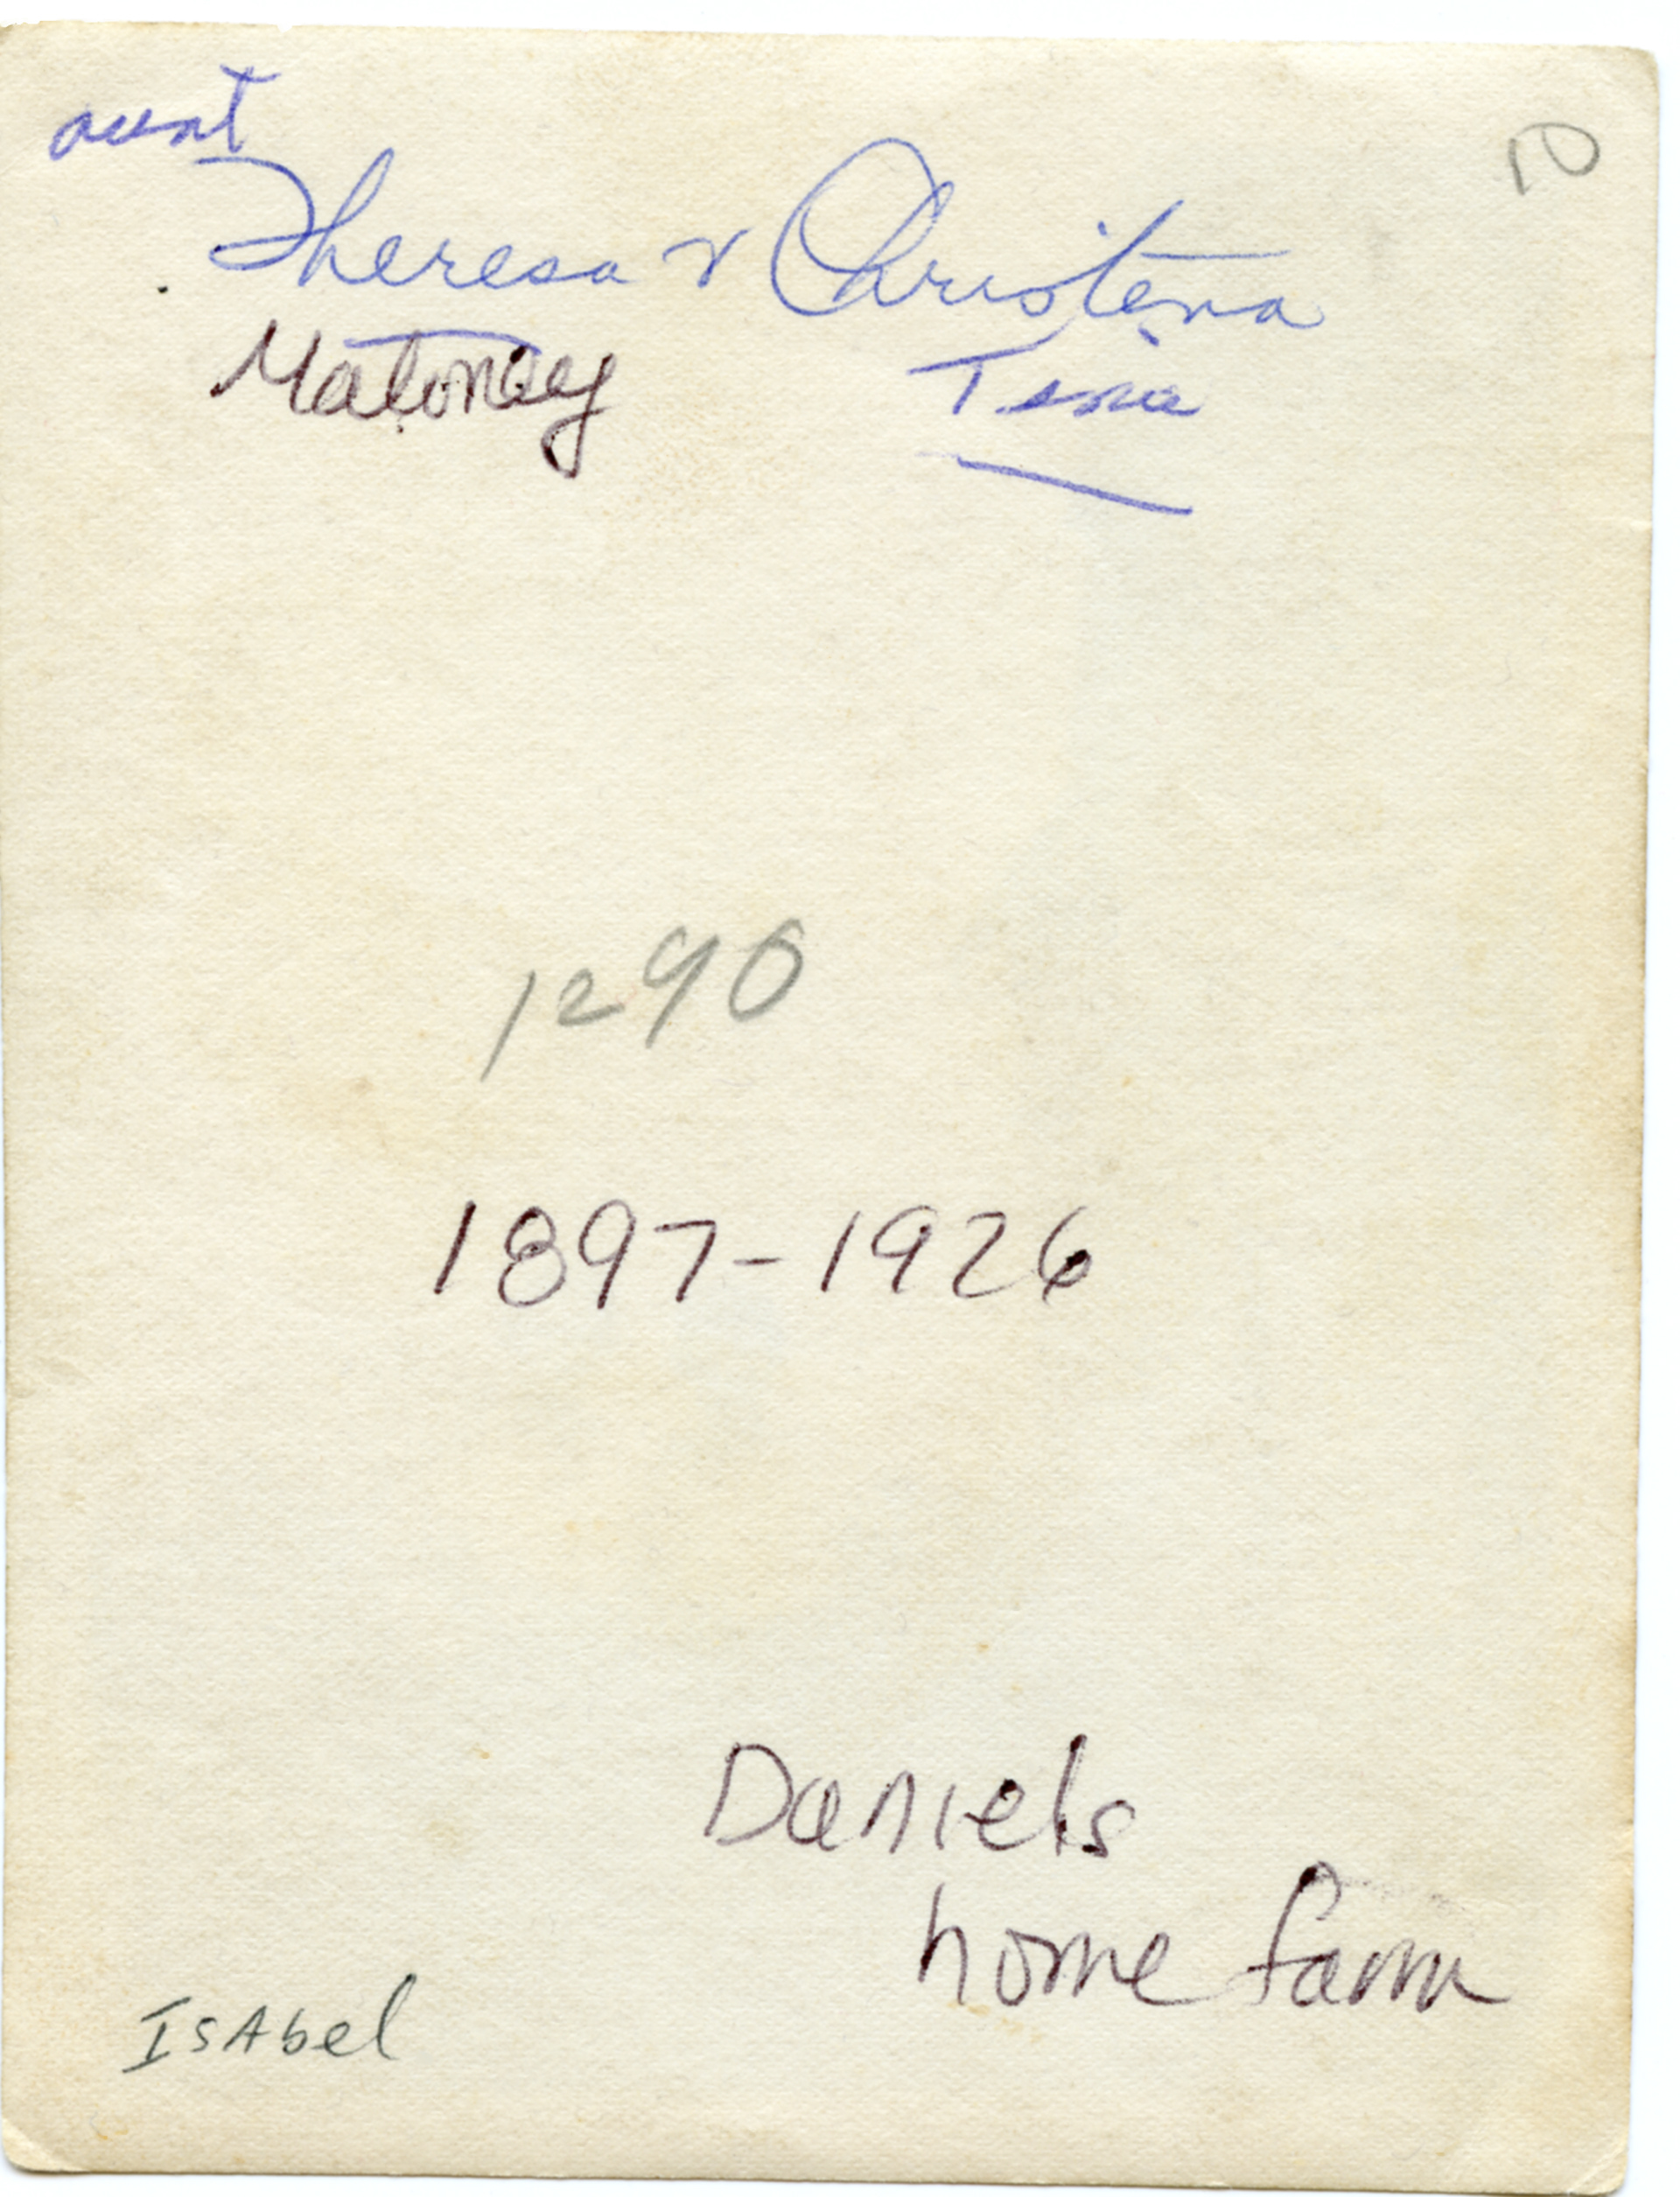 aunt
10
Theresa & Christena
Maloney
Tena
1290
1897-1926
Daniels
home farm
IsAbel